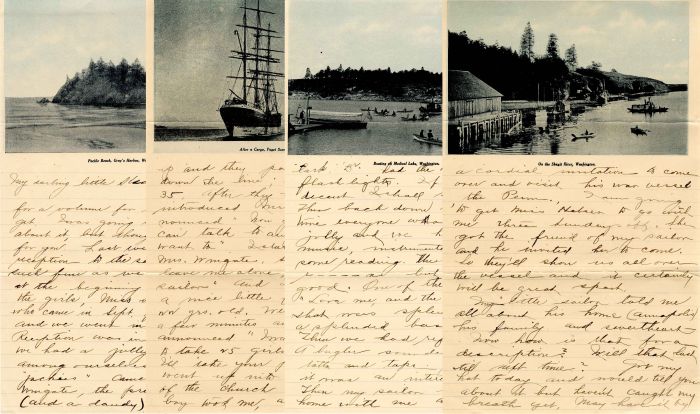 Pacific Beach, Gray's Harbor, W
After a Cargo, Puget Soun
Boating on Medical Lake, Washington.
On the Skagit River, Washington.
My darling little
for a volume for
get. I was going
about it but
for you. Last we
reception to the so
such fun as we
at the beginning
the girls. Miss
who came in Sept.
and we went in
Reception was in
we had a jolly
among ourselves
"jackies" Came
Wingate, the pre
(and a dandy)
up and they pa
down the line,
35 after they
introduced
announced "Now
can talk to an
want to."
Mrs. Wingate, s
leave me alone
sailors" and
a nice little
20 yrs. old. We
a few minutes a
announced "Now
to take 25 girls
I'll take your
went out
of the Church
boy wod me, a
Park D. had the
flash lights. If
decent I shall
this back down
time everyone
jolly and we h
music instrument
some reading the
as
good. One of the
"Love me, and the
that was splen
a splendid bas
Then we had ref
A bugler sounde
tatto and taps,
it was an intere
Then my sailor
home with me a
a cordial invitation to come
over and visit his war vessel
the Penn. I am going
to get Miss Nelson to go with
me three sundays. She
got the friend of my sailor
and he invited her to come.
So they'll show us all over
the vessel and it certainly
will be great sport.
My little sailor told me
all about his home (Annapolis)
his family and sweetheart
Now how is that for a
description? Will that last
till next time? got my
hat today and would tell you
about it but haven't caught my
breath yet. May have it by